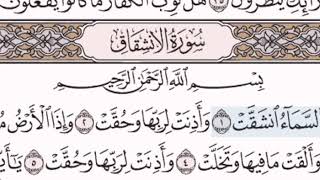 رَآئِكِ يَنظُرُونَ ٣٥ هَلْ ثُوِّبَ ٱلْكُفَّارُ مَا كَانُوا۟ يَفْعَلُونَ
سُورَةُ الانْشِقَاقِ
بِسْمِ ٱللَّهِ ٱلرَّحْمَٰنِ ٱلرَّحِيمِ
ٱلسَّمَآءُ ٱنشَقَّتْ ١ وَأَذِنَتْ لِرَبِّهَا وَحُقَّتْ ٢ وَإِذَا ٱلْأَرْضُ مُ
وَأَلْقَتْ مَا فِيهَا وَتَخَلَّتْ ٤ وَأَذِنَتْ لِرَبِّهَا وَحُقَّتْ ٥ يَٰٓأَيُّ